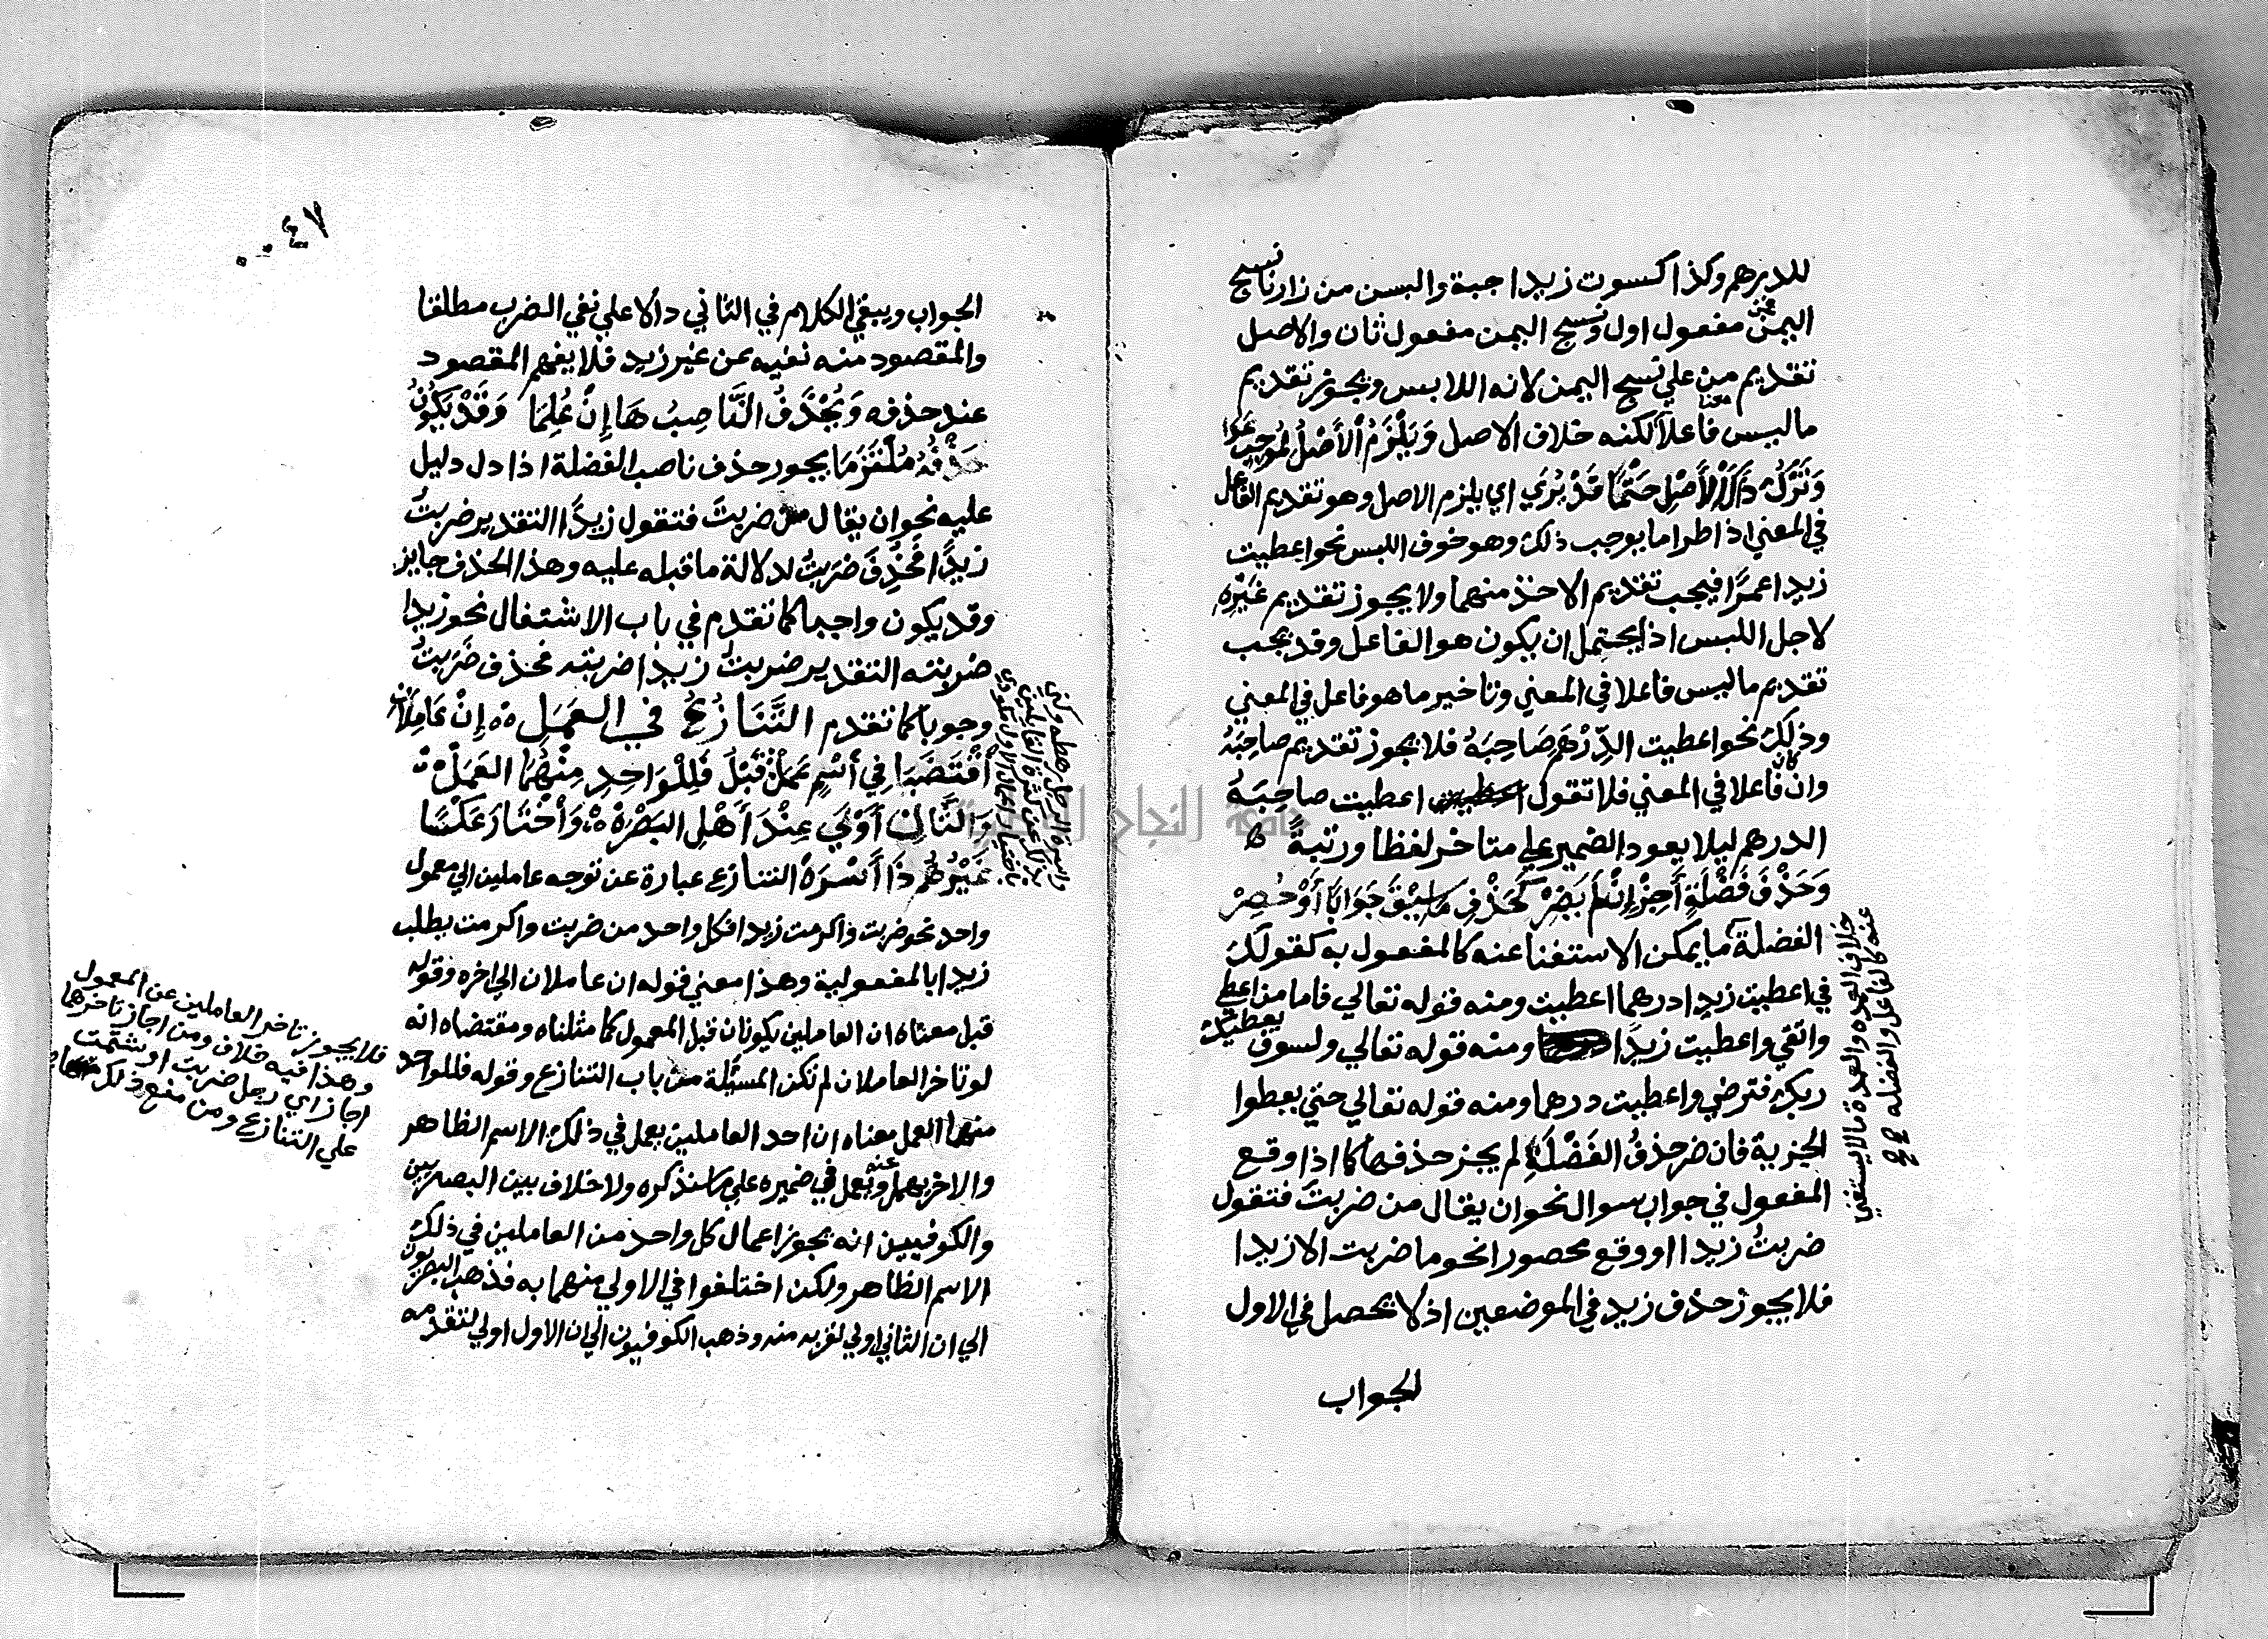 للدرهم وكذا كسوت زيدا جبة والبسن من زارنا نسج
اليمن فمن مفعول اول ونسج اليمن مفعول ثان والاصل
تقديم من علي نسج اليمن لانه اللابس ويجوز تقديم
ماليس فاعلا معنا لكنه خلاف الاصل وَيَلْزَمُ الأَصْلُ لِمُوجِبٍ عَرَا
وَتَرْكُ ذَاكَ الأَصْلِ حَتْمًا قَدْ يُرَي اي يلزم الاصل وهو تقديم الفاعل
في المعني اذا طرا ما يوجب ذلك وهو خوف اللبس نحو اعطيت
زيدا عمرًا فيجب تقديم الاخذ منهما ولا يجوز تقديم غيره
لاجل اللبس اذ يحتمل ان يكون هو الفاعل وقد يجب
تقديم ماليس فاعلا في المعني وتاخير ما هو فاعل في المعني
وذلك نحو اعطيت الدِّرْهَمَ صَاحِبَهُ فلا يجوز تقديم صاحبه
وان كان فاعلا في المعني فلا تقول اعطيت صاحِبَهُ
الدرهم ليلا يعود الضمير علي متاخر لفظا ورتبةً
وَحَذْفَ فَضْلَةٍ أَجِزْ إِنْ لَمْ يَضِرْ كَحَذْفِ مَا سِيْقَ جَوَابًا أَوْ حُصِرْ
الفضلة ما يمكن الاستغنا عنه كالمفعول به كقولك
خلاف العمده والعمدة مالا يستغني
عنه كالفاعل والفضله
في اعطيت زيدا درهما اعطيت ومنه قوله تعالي فاما من اعطي
واتقي واعطيت زيدًا ومنه قوله تعالي ولسوف يعطيك
ربك فترضي واعطيت درهما ومنه قوله تعالي حتي يعطوا
الجزية فان ضر حذفُ الفَضْلَةِ لم يجز حذفها كما اذا وقع
المفعول في جواب سوال نحو ان يقال من ضربتَ فتقول
ضربتُ زيدا او وقع محصورا نحو ما ضربت الا زيدا
فلا يجوز حذف زيد في الموضعين اذ لا يحصل في الاول
الجواب
٠٠٤٧
الجواب ويبقي الكلام في الثاني دالا علي نفي الضرب مطلقا
والمقصود منه نفيه عن غير زيد فلا يفهم المقصود
عند حذفه وَيُحْذَفُ النَّاصِبُهَا إِنْ عُلِمَا وَقَدْ يَكُونُ
حَذْفُهُ مُلْتَزَمَا يجوز حذف ناصب الفضلة اذا دل دليل
عليه نحو ان يقال من ضربتَ فتقول زيدًا التقدير ضربتُ
زيدًا فحُذِفَ ضَرَبتُ لدلالة ما قبله عليه وهذا الحذف جايز
وقد يكون واجبا كما تقدم في باب الاشتغال نحو زيدا
ضربته التقدير ضربتُ زيدا ضربته فحذف ضَرَبتُ
وجوبا كما تقدم التَّنَازُعُ في العَمَلِ إِنْ عَامِلَانِ
أَقْتَضَيَا فِي أسْمٍ عَمَلْ قَبْلُ فَلِلْوَاحِدِ مِنْهُمَا العَمَلْ
وَالثَّانِ أَوْلَي عِنْدَ أَهْلِ البَصْرَهْ وَأخْتَارَ عَكْسًا
غَيْرُهُمْ ذَا أَسْرَهْ التنازع عبارة عن توجه عاملين الي معمول
واحد نحو ضربت واكرمت زيدا فكل واحد من ضربت واكرمت يطلب
زيدا بالمفعولية وهذا معني قوله ان عاملان الي اخره وقوله
قبل معناه ان العاملين يكونان قبل المعمول كما مثلناه ومقتضاه انه
لو تاخر العاملان لم تكن المسئلة من باب التنازع وقوله فللواحد
منهما العمل معناه ان احد العاملين يعمل في ذلك الاسم الظاهر
والاخر يهمل عنه ويعمل في ضميره علي ما سنذكره ولا خلاف بين البصريين
والكوفيين انه يجوز اعمال كل واحد من العاملين في ذلك
الاسم الظاهر ولكن اختلفوا في الاولي منهما به فذهب البصريون
الي ان الثاني اولي لقربه منه وذهب الكوفيون الي ان الاول اولي لتقدمه
فلا يجوز تاخر العاملين عن المعمول
وهذا فيه خلاف ومن اجاز تاخرهما
اجاز اي رجل ضربت او شتمت
علي التنازع ومن منع ذلك
جامعة النجاح الوطنية